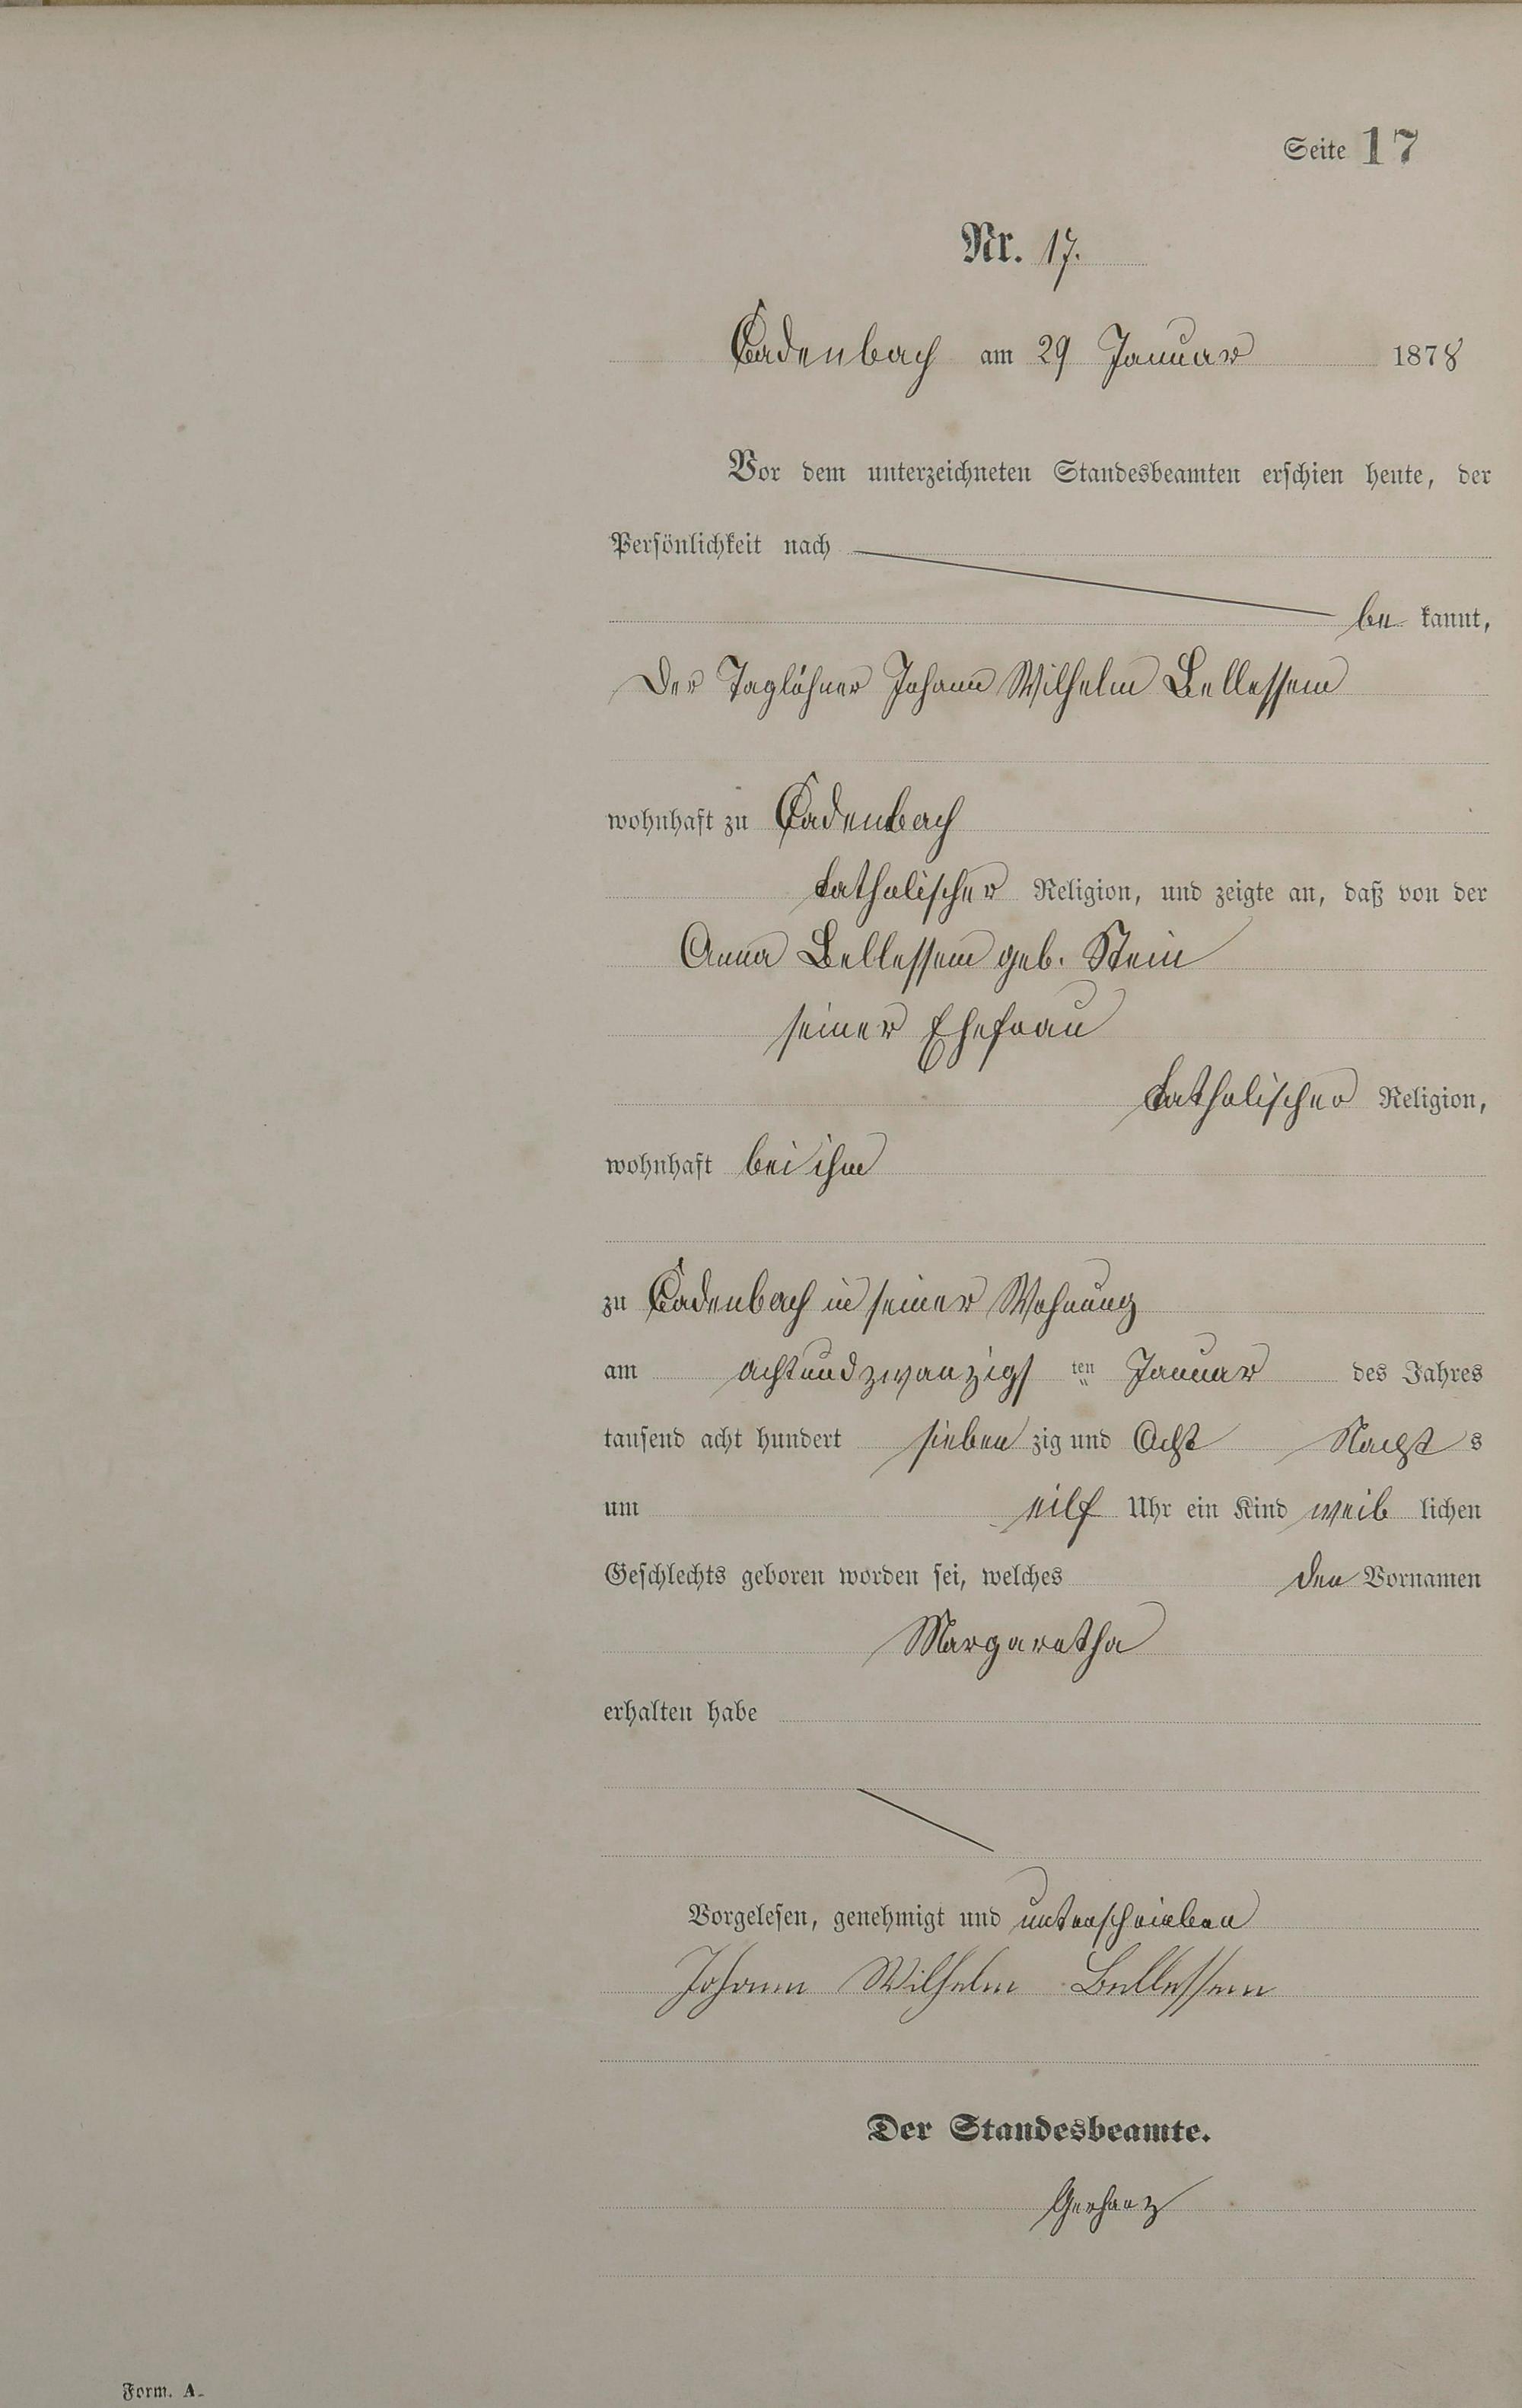 Seite 17
Nr. 17.
Cadenbach am 29 Januar 1878
Vor dem unterzeichneten Standesbeamten erschien heute, der
Persönlichkeit nach
be kannt,
Der Taglöhner Johann Wilhelm Bellessem
wohnhaft zu Cadenbach
katholischer Religion, und zeigte an, daß von der
Anna Bellessem geb. Stein
seiner Ehefrau
katholischer Religion,
wohnhaft bei ihm
zu Cadenbach in seiner Wohnung
am achtundzwanzigs ten Januar des Jahres
tausend acht hundert sieben zig und Acht Nacht s
um eilf Uhr ein Kind weib lichen
Geschlechts geboren worden sei, welches den Vornamen
Margaretha
erhalten habe
Vorgelesen, genehmigt und unterschrieben
Johann Wilhelm Bellessem
Der Standesbeamte.
Gerharz
Form. A.